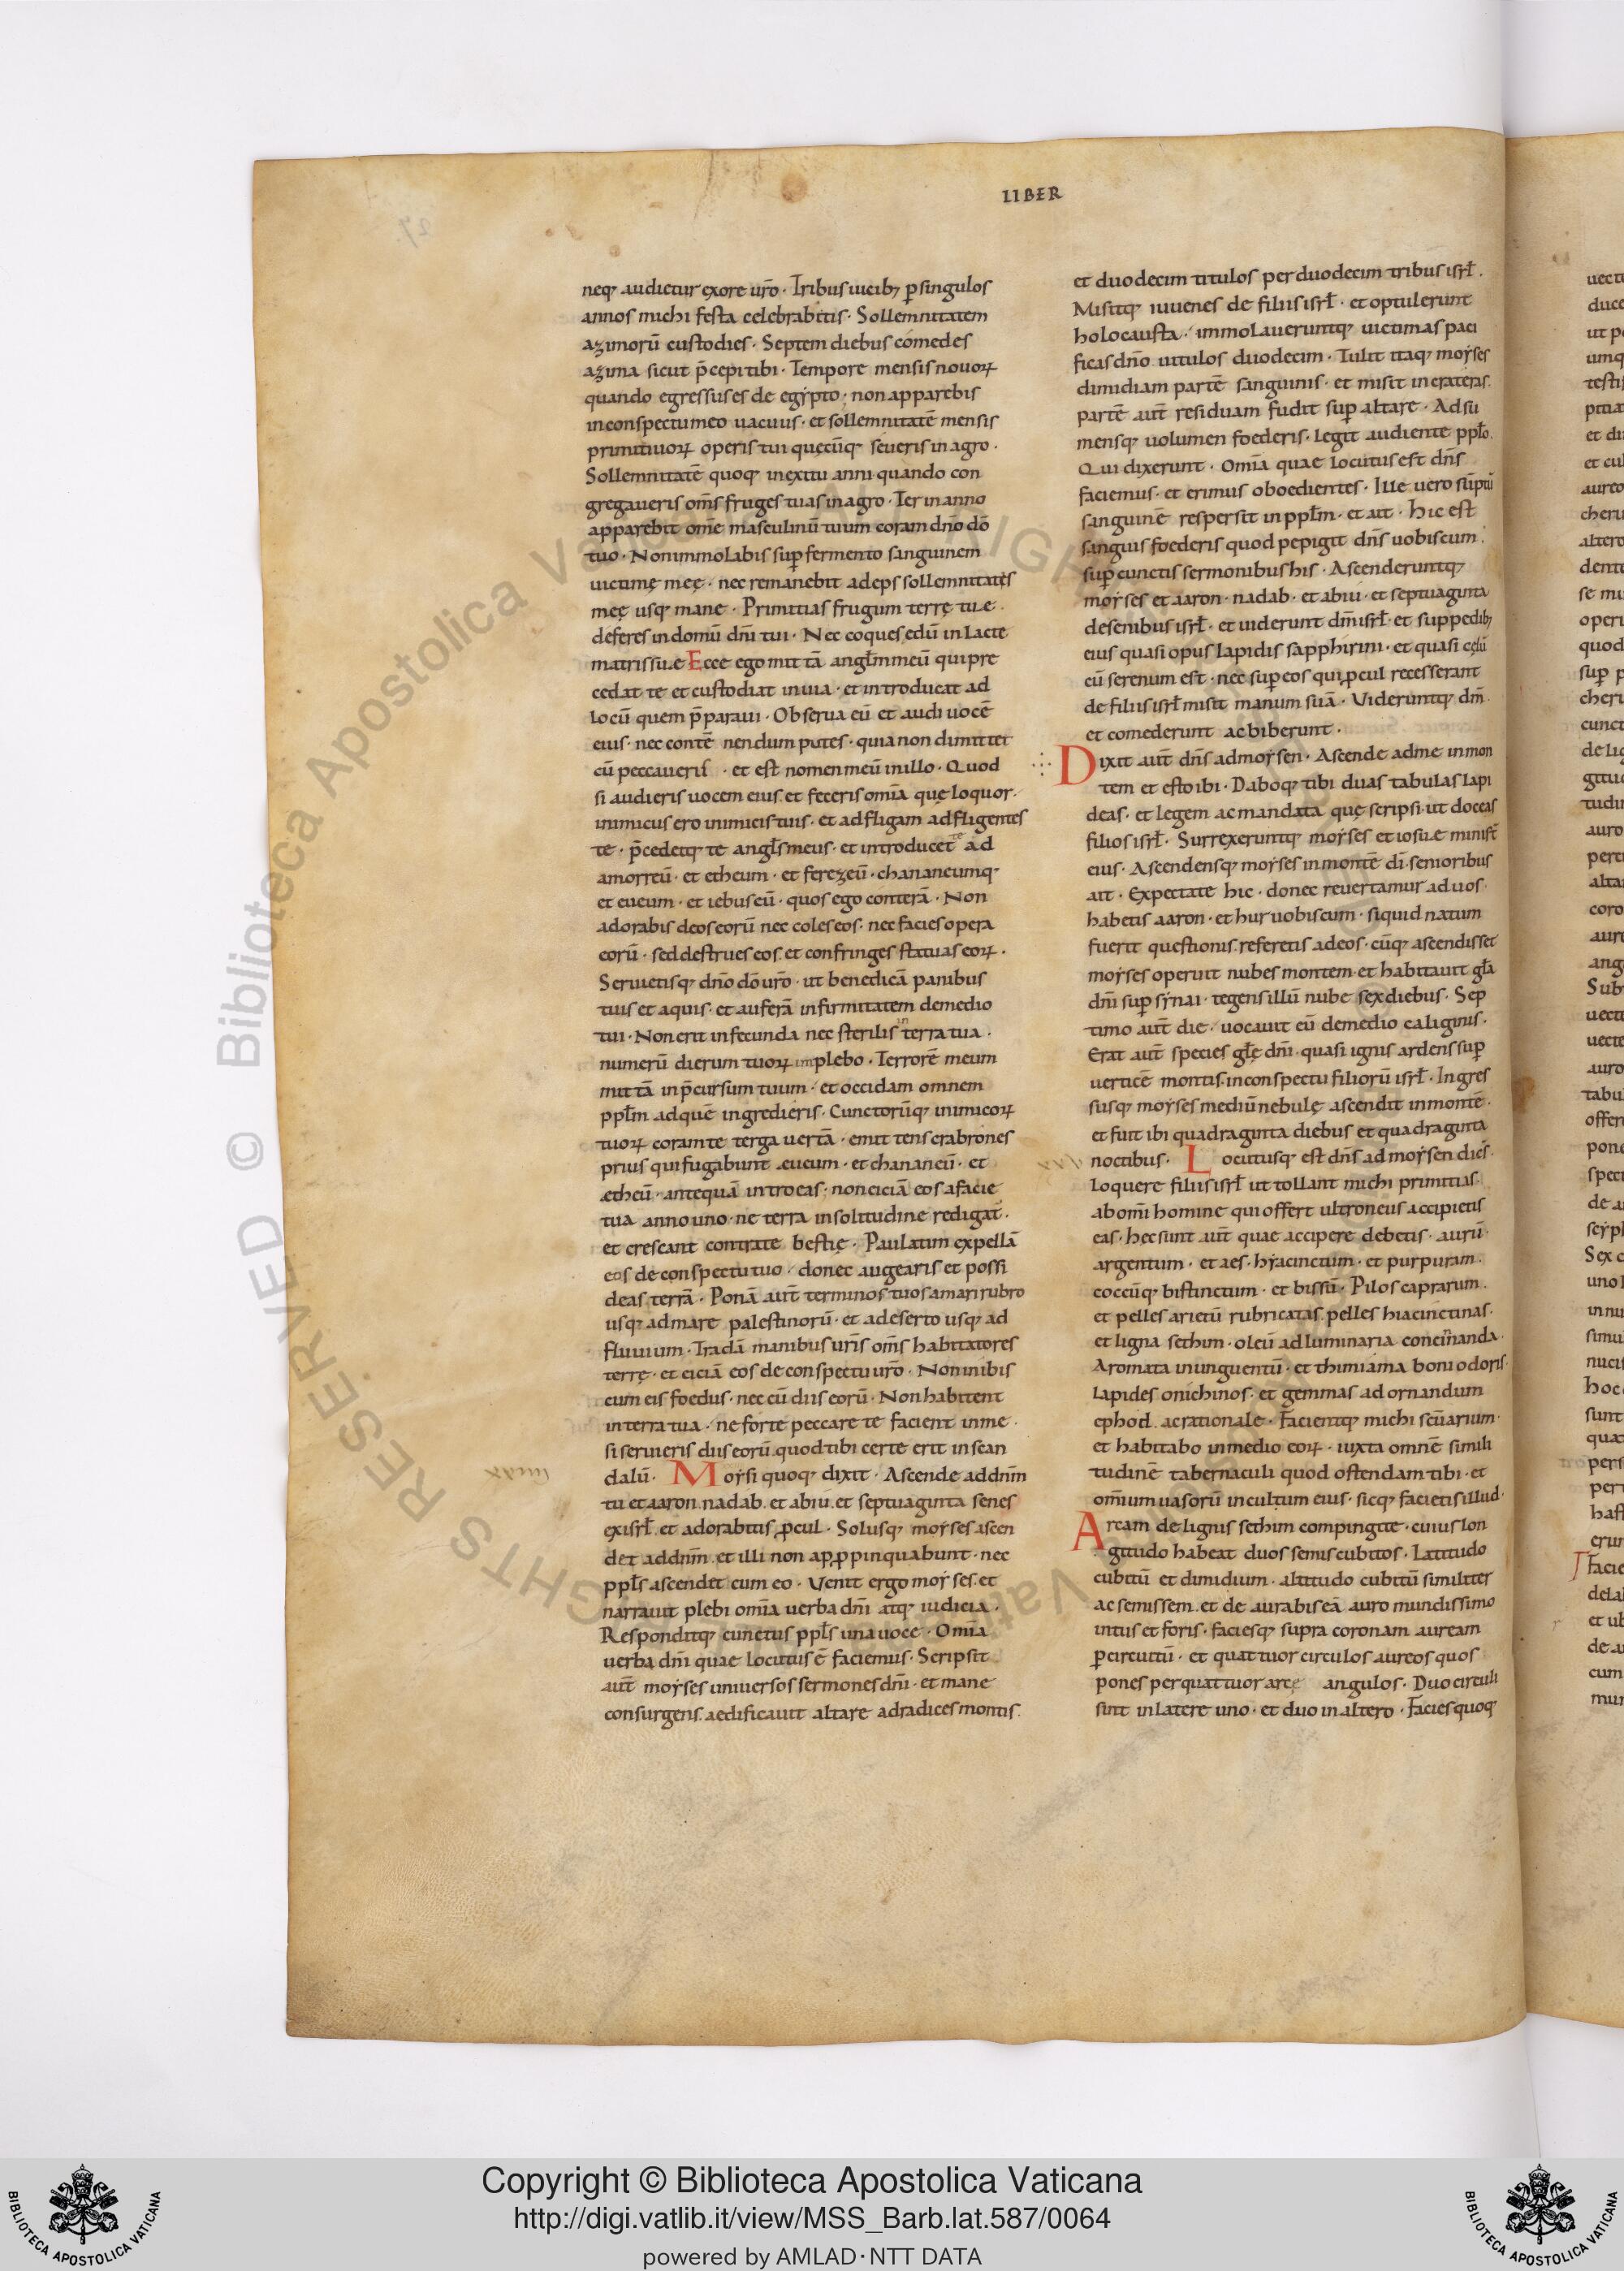 LIBER
neq; audietur exore uro. Tribus uicib; p singulos
annos michi festa celebrabitis. Sollemnitatem
azimorū custodies. Septem diebus comedes
azima sicut p̄cepi tibi. Tempore mensis nouoꝝ
quando egressus es de egypto. non apparebis
inconspectu meo uacuus. et sollemnitatē mensis
primitiuoꝝ operis tui quęcūq; seueris in agro.
Sollemnitatē quoq; inexitu anni quando con
gregaueris om̄s fruges tuas in agro. Ter in anno
apparebit om̄e masculinū tuum coram dn̄o dō
tuo. Non immolabis sup fermento sanguinem
uictimę meę. nec remanebit adeps sollemnitatis
meę usq; mane. Primitias frugum terrę tuae
deferes in domū dn̄i tui. Nec coques edū in lacte
matris suae Ecce ego mittā angl̄m meū qui pre
cedat te et custodiat in uia. et introducat ad
locū quem p̄paraui. Obserua eū et audi uocē
eius. nec contēnendum putes. quia non dimittet
cū peccaueris. et est nomen meū in illo. Quod
si audieris uocem eius. et feceris omīa quę loquor.
inimicus ero inimicis tuis. et adfligam adfligentes
te. p̄cedetq; te angl̄s meus. et introducet te ad
amorreū. et etheum. et ferezeū. chananeumq;
et eueum. et iebuseū. quos ego conterā. Non
adorabis deos eorū nec coles eos. nec facies opera
eorū. sed destrues eos. et confringes statuas eoꝝ.
Seruietisq; dn̄o dō uro. ut benedicā panibus
tuis et aquis. et auferā infirmitatem de medio
tui. Non erit infecunda nec sterilis in terra tua.
numerū dierum tuoꝝ implebo. Terrorē meum
mittā in p̄cursum tuum. et occidam omnem
ppl̄m ad quē ingredieris. Cunctorūq; inimicoꝝ
tuoꝝ coram te terga uertā. emittens crabrones
prius qui fugabunt eueum. et chananeū. et
etheū. antequā introeas. non eiciā eos a facie
tua anno uno. ne terra in solitudine redigat̄.
et crescant contra te bestię. Paulatim expellā
eos de conspectu tuo. donec augearis et possi
deas terrā. Ponā aut̄ terminos tuos a mari rubro
usq; ad mare palestinorū. et a deserto usq; ad
fluuium. Tradā manibus ur̄is om̄s habitatores
terrę. et eiciā eos de conspectu uro. Non inibis
cum eis foedus. nec cū diis eorū. Non habitent
in terra tua. ne forte peccare te facient in me.
si seruieris diis eorū. quod tibi certe erit in scan
dalū. Moysi quoq; dixit. Ascende ad dn̄m
tu et aaron. nadab. et abiu. et septuaginta senes
ex isrl̄. et adorabitis ꝓcul. Solusq; moyses ascen
det ad dn̄m. et illi non apꝓpinquabunt. nec
ppl̄s ascendet cum eo. Venit ergo moyses. et
narrauit plebi omīa uerba dn̄i atq; iudicia.
Responditq; cunctus ppl̄s una uoce. Omīa
uerba dn̄i quae locutus ē faciemus. Scripsit
aut̄ moyses uniuersos sermones dn̄i. et mane
consurgens. aedificauit altare ad radices montis.
et duodecim titulos per duodecim tribus isrl̄.
Misitq; iuuenes de filiis isrl̄. et optulerunt
holocausta. immolaueruntq; uictimas paci
ficas dn̄o uitulos duodecim. Tulit itaq; moyses
dimidiam partē sanguinis. et misit in crateras.
partē aut̄ residuam fudit sup altare. Adsu
mensq; uolumen foederis. legit audiente pplo.
Qui dixerunt. Omīa quae locutus est dn̄s
faciemus. et erimus oboedientes. Ille uero sūptū
sanguinē respersit in ppl̄m. et ait. Hic est
sanguis foederis quod pepigit dn̄s uobiscum.
sup cunctis sermonibus his. Ascenderuntq;
moyses et aaron. nadab. et abiu. et septuaginta
de senibus isrl̄. et uiderunt dm̄ isrl̄. et sup pedib;
eius quasi opus lapidis sapphirini. et quasi cęlū
cū serenum est. nec sup eos qui ꝓcul recesserant
de filiis isrl̄ misit manum suā. Videruntq; dm̄
et comederunt ac biberunt.
Dixit aut̄ dn̄s ad moysen. Ascende ad me in mon
tem et esto ibi. Daboq; tibi duas tabulas lapi
deas. et legem ac mandata quę scripsi. ut doceas
filios isrl̄. Surrexeruntq; moyses et iosue minist̄
eius. Ascendensq; moyses in montē dī. senioribus
ait. Expectate hic. donec reuertamur ad uos.
habetis aaron. et hur uobiscum. si quid natum
fuerit questionis. referetis ad eos. cūq; ascendisset
moyses operuit nubes montem. et habitauit gl̄a
dn̄i sup synai. tegens illū nube sex diebus. Sep
timo aut̄ die. uocauit eū de medio caliginis.
Erat aut̄ species gl̄ę dn̄i. quasi ignis ardens sup
uerticē montis. in conspectu filiorū isrl̄. Ingres
susq; moyses mediū nebulę ascendit in montē.
et fuit ibi quadraginta diebus et quadraginta
noctibus. Locutusq; est dn̄s ad moysen dic̄s.
Loquere filiis isrl̄ ut tollant michi primitias.
ab omi homine qui offert ultroneus accipietis
eas. hec sunt aut̄ quae accipere debetis. aurū.
argentum. et aes. hyacinctum. et purpuram.
coccūq; bistinctum. et bissū. Pilos caprarum.
et pelles arietū rubricatas. pelles hiacinctinas.
et ligna sethim. oleū ad luminaria concin̄nanda.
Aromata in unguentū. et thimiama boni odoris.
lapides onichinos. et gemmas ad ornandum
ephod. ac rationale. Facientq; michi scūarium.
et habitabo in medio eoꝝ. iuxta omnē simili
tudinē tabernaculi quod ostendam tibi. et
omīum uasorū in cultum eius. sicq; facietis illud.
Arcam de lignis sethim compingite. cuius lon
gitudo habeat duos semis cubitos. Latitudo
cubitū et dimidium. altitudo cubitū similiter
ac semissem. et de aurabis eā auro mundissimo
intus et foris. faciesq; supra coronam auream
p circuitū. et quattuor circulos aureos quos
pones per quattuor arcę angulos. Duo circuli
sint in latere uno. et duo in altero. Facies quoq;
© Biblioteca Apostolica Vaticana
Copyright © Biblioteca Apostolica Vaticana
http://digi.vatlib.it/view/MSS_Barb.lat.587/0064
powered by AMLAD·NTT DATA
BIBLIOTECA APOSTOLICA VATICANA
BIBLIOTECA APOSTOLICA VATICANA